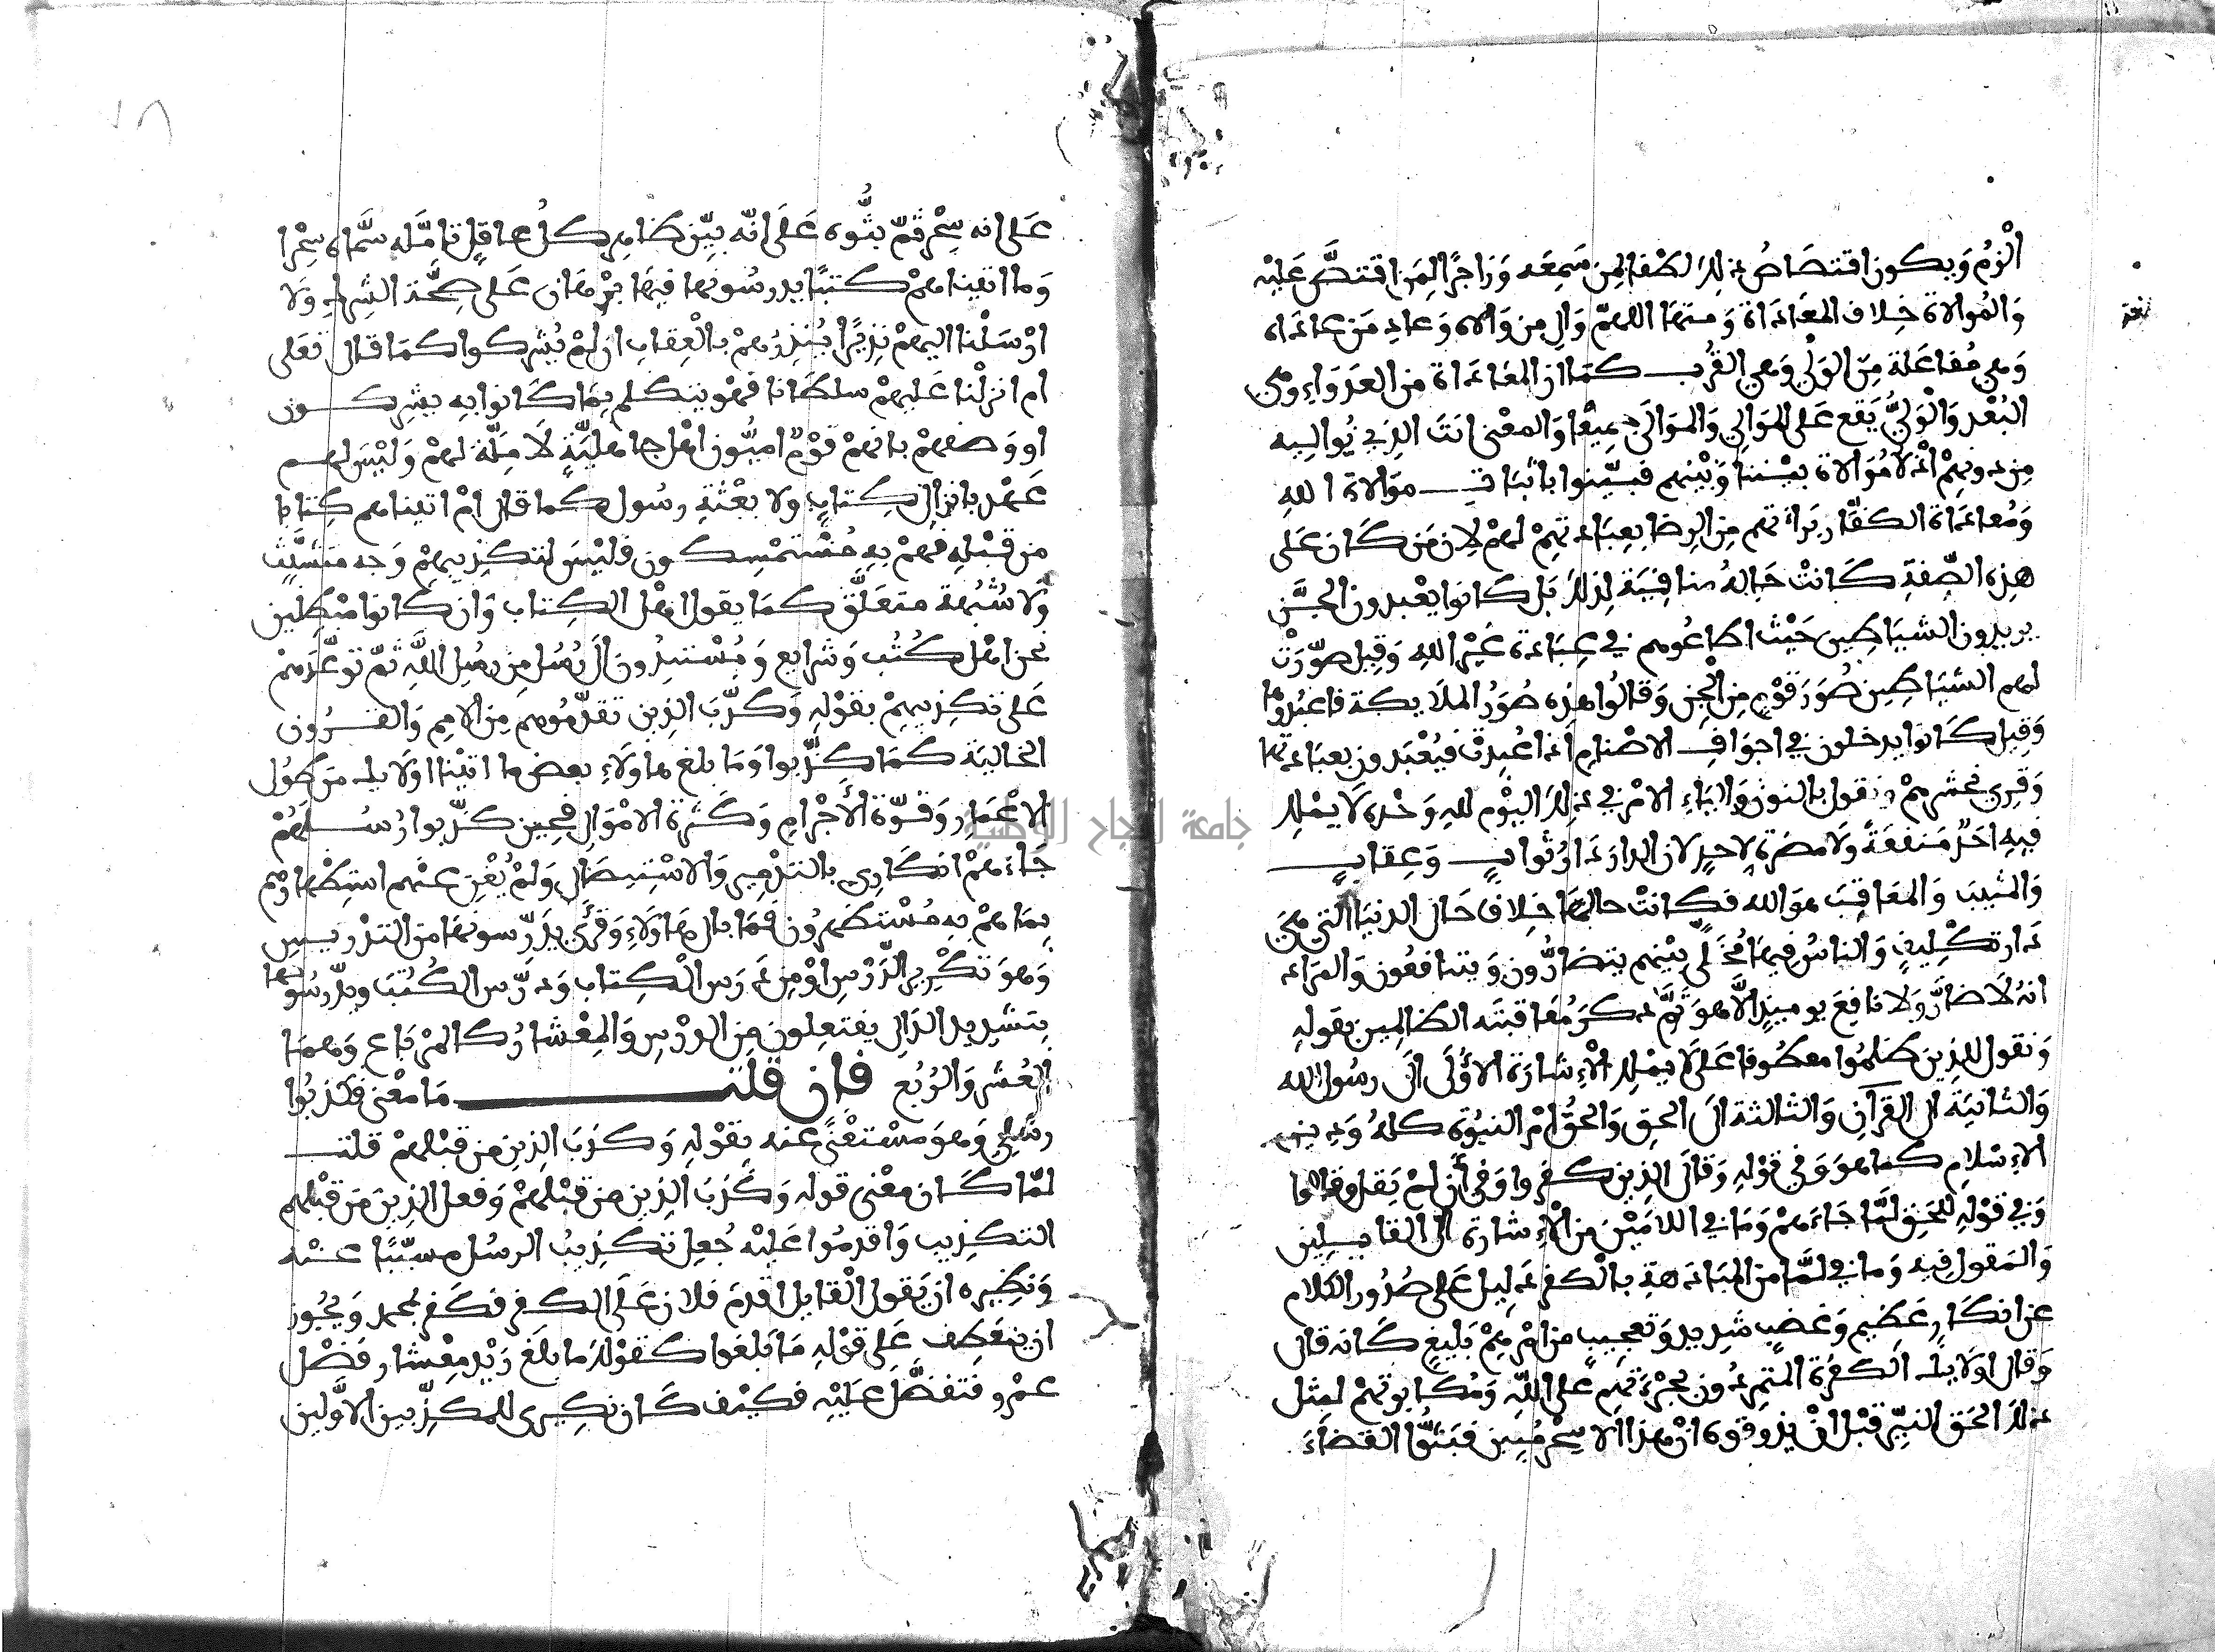 الْزمُ وَيكون اقتصَاصُ ذلكَ لطفا لمن سَمِعَه وَزاجرًا لمِن اقتصَّ عَليْه
وَالمُوالاة خِلاف المعَاداة وَمنهَا اللهمّ وَالِ من وَالاه وَعادِ مَن عاداه
وَهي مُفاعَلة مِنَ الوَلْي وَهي القُرب كمَا ان المعَاداة من العدَوَاءِ وهي
البُعْد وَالْوَليُّ يَقع عَلى الموَالي وَالموَالَى جميعًا وَالمعْنى انتَ الذي نُواليه
من دونهمْ اذْ لا مُوَالاة بيْننا وَبيْنهم فبيّنوا باثبات موَالاة الله
وَمُعاداة الكفّار بَراءَتهم مِن الرضا بعِبَادتهِمْ لهمْ لان مَن كَان عَلى
هذه الصِّفةِ كَانتْ حَاله منافِيَة لِذلكَ بَل كَانوا يعْبدون الجنَّ
يريدون الشيَاطِين حَيْث اطاعُوهم في عِبَادة غَيْر اللهِ وَقيل صوّرَتْ
لهم الشيَاطِين صُوَرَ قوْمٍ من الْجنِ وَقالُوا هذه صُوَرُ الملايكة فاعبُدوها
وَقِيل كَانوا يدخلون في اجوَافِ الاصْنامِ اذا عُبِدت فيُعْبَدون بعبَادتها
وَقرِئ نحشرهمْ ونقول بالنون وَاليَاءِ الامْر في ذلكَ اليَوْم للهِ وَحْده لا يمْلك
فيهِ احَدٌ مَنفعَةً ولَا مضرّة لاحدٍ لان الدارَ دَارُ ثوابٍ وَعِقابٍ
وَالمثيبَ وَالمعَاقِبَ هوَ الله فكانتْ حالهَا خِلاف حَال الدنيَا التي هيَ
دَار تكْليفٍ وَالناسُ فيهَا مُخَلًّى بيْنهم يتضَارُّون وَيتنافعُون وَالمرَاد
انهُ لَا ضارَّ وَلا نافِعَ يوميذٍ الّا هوَ ثمَّ ذكرَ مُعَاقبتَه الظالمِين بقولِهِ
وَنقول للذين ظلمُوا معطُوفا عَلى لَا يمْلك الْاِشارَة الاوُلَى الَى رسُول الله
وَالثانيَة الى القرآنِ وَالثالثة الَى الحقِ وَالحقُّ امْر النبُوّة كلهُ وَدِينهم
الاِسْلامِ كما هوَ وَفي قوْلهِ وَقالَ الذين كفروا وَفي أن لمْ يَقل وقالُوا
وَفي قوْلهِ للحَق لمَّا جَاءَهمْ وَمَا في اللامَيْن من الْاِشارة الى القايلين
وَالمقول فيه وَما في لمَّا من المبَادهةِ بالْكفر دَليل عَلى صُدُور الكلام
عن انكارٍ عَظيم وَغضبٍ شديد وَتعجيبٍ من امْرهِمْ بَليغٍ كَانه قال
وَقال اولَايك الكفرَة المتمردُون بجُرْءَتهم على اللهِ وَمُكابرَتهمْ لمثل
ذلكَ الحَق النيِّر قبْل انْ يذوقوه انْ هذا الا سِحْر مُبين فبَتُّوا القضَاءَ
عَلى انه سِحْر ثمّ بتُّوه عَلَى انّه بيّن ظاهر كلُ عاقِلٍ تامّله سَمَّاه سِحْرا
وَما اتيناهمْ كتبًا يدرسُونها فيهَا بُرْهَان عَلى صِحّة الشِركِ وَلا
ارْسَلْنا اليهمْ نذيرًا يُنذِرُهمْ بالْعِقابِ ان لمْ يُشركوا كمَا قال تعَلى
ام انزلْنا عَليهمْ سلطَانا فهْو يتكلم بِمَا كَانوا بهِ يشركون
او وَصَفهمْ بانهمْ قوْمٌ امّيُّون اهْل جاهليَّةٍ لَا ملَّة لهمْ وَليْسَ لهم
عَهْد بانزال كِتابٍ ولا بِعْثةِ رسُول كما قال امْ اتيناهم كِتابا
من قبْلهِ فهمْ بهِ مُسْتمْسِكون فليْسَ لتكذيبِهمْ وَجه متشبَّث
وَلَا شُبْهة متعَلَّق كمَا يقول اهْل الكِتاب وَان كَانوا مبْطلين
نحن اهْل كُتُب وَشرايع وَمُسْتنِدُون الَى رُسُل من رسُل اللَّهِ ثمّ توعَّدَهمْ
عَلى تكذيبهمْ بقوْلهِ وَكذّبَ الذين تقدّموُهم مِن الامم وَالقرُون
الخاليَة كمَا كذّبوا وَمَا بلغ هاولَاءِ بعض ما اتيْنا اولَايك من طول
الاعْمَار وَقوّة الأجْرامِ وَكثرَة الامْوَال فحِين كذّبوا رُسُلهُمْ
جَاءَهمْ انكَارِي بالتدْمِير وَالاسْتِيصَال وَلمْ يُغْن عنهم استِظهَارهم
بمَا همْ به مُسْتظهرُون فمَا بال هَاوْلَاءِ وَقرِئ يُدَرّسونهَا من التدْريس
وَهوَ تكْرير الدَّرْسِ اوْ مِن دَرسَ الْكِتابِ وَدرّس الكُتُبَ ويدّرسُونها
بتشدِيد الدّالِ يفتعِلون مِن الدرْسِ وَالمِعْشار كالمرْبَاع وَهمَا
العُشر وَالرُبع فان قلت مَا معْنى فكذبُوا
رسُلي وَهوَ مسْتغْنًى عنه بقوْلهِ وَكذبَ الذِينَ من قبْلهمْ قلت
لمّا كَان معْنى قولهِ وَكذبَ الذِين من قبْلهمْ وَفعل الذِينَ مَن قبْلهم
التكذيب وَاقدمُوا عَليْه جُعل تكذيبُ الرسُل مسبّبًا عنه
وَنظِيره ان يَقول الْقايل اقدمَ فلان عَلَى الكفر فكفرَ بمحمد وَيجُوز
ان ينعَطِف عَلى قوْلهِ مَا بَلغوا كقوْلكَ ما بلغَ زَيْد مِعْشار فضْل
عمْرو فتفضَّل عَليْهِ فكيْف كَان نكيرى للمكذّبين الاوَّلين